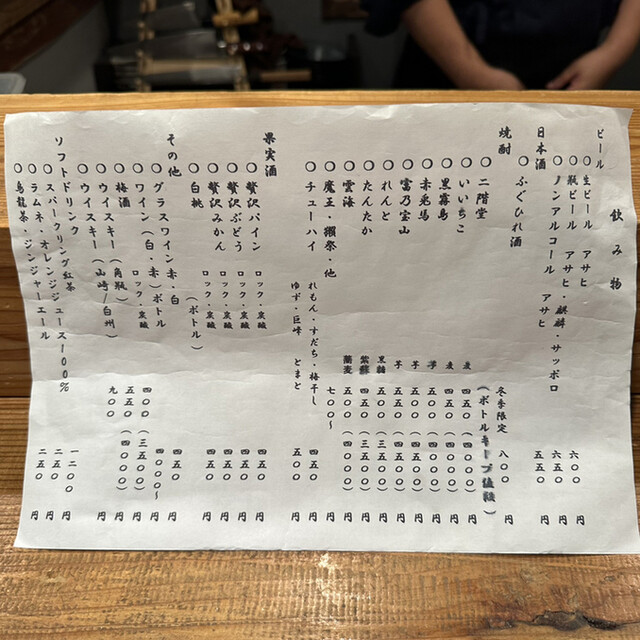 飲み物
ビール
○生ビール アサヒ 六〇〇円
○瓶ビール アサヒ・麒麟・サッポロ 六五〇円
○ノンアルコール アサヒ 五五〇円
日本酒
○ふぐひれ酒 冬季限定 八〇〇円
焼酎 (ボトルキープ値段)
○二階堂 麦 四五〇(四〇〇〇)円
○いいちこ 麦 四五〇(四〇〇〇)円
○黒霧島 芋 四五〇(四〇〇〇)円
○赤兎馬 芋 五五〇(四五〇〇)円
○富乃宝山 芋 五五〇(四五〇〇)円
○れんと 黒糖 四五〇(三五〇〇)円
○たんたか 紫蘇 四五〇(三五〇〇)円
○雲海 蕎麦 五〇〇(四〇〇〇)円
○魔王・獺祭・他 七〇〇〜円
○チューハイ れもん・すだち・梅干し 四五〇円
ゆず・巨峰 とまと 五〇〇円
果実酒
○贅沢パイン ロック・炭酸 四五〇円
○贅沢ぶどう ロック・炭酸 四五〇円
○贅沢みかん ロック・炭酸 四五〇円
○白桃 (ボトル) 四五〇円
その他
○グラスワイン赤・白 四五〇円
○ワイン(白・赤)ボトル 四〇〇〇〜円
○梅酒 ロック・炭酸 四〇〇(三五〇〇)円
○ウイスキー(角瓶) 五五〇(四〇〇〇)円
○ウイスキー(山崎/白州) 九〇〇円
ソフトドリンク
○スパークリング紅茶 一二〇〇円
○ラムネ・オレンジジュース100% 二五〇円
○烏龍茶・ジンジャーエール 二五〇円